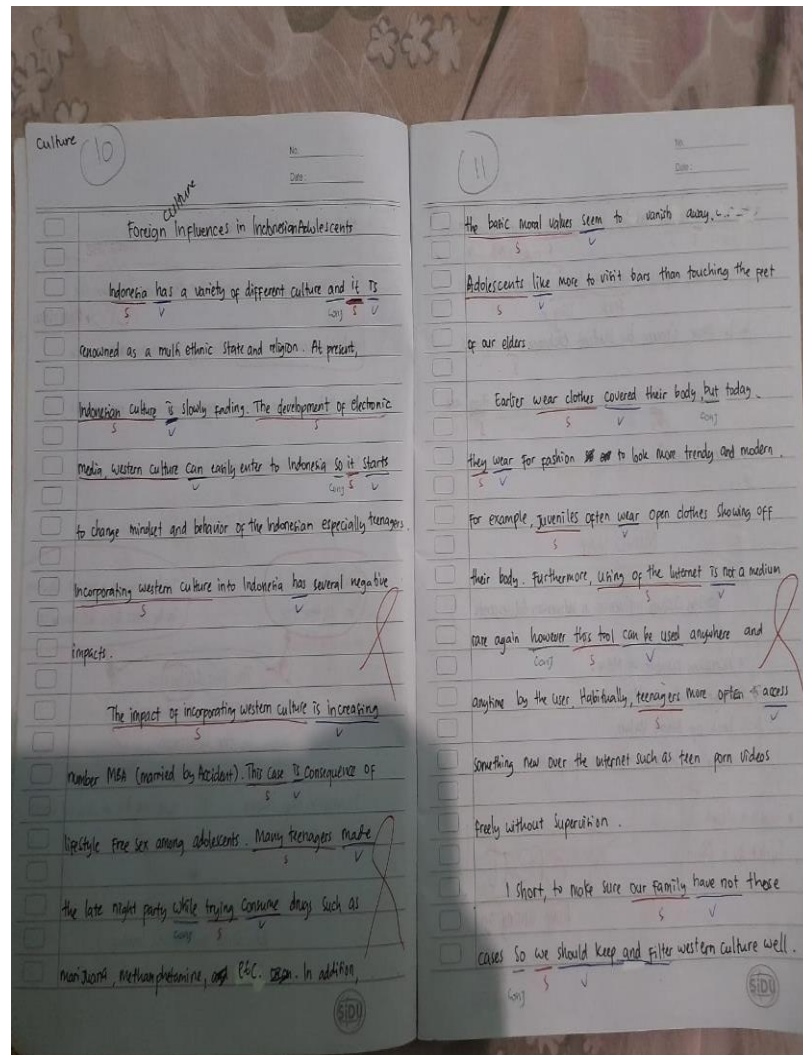 Culture
10
No.
Date :
culture
Foreign Influences in Indonesian Adolescents
Indonesia has a variety of different culture and it is
S V Conj S V
renowned as a multi ethnic state and religion. At present,
Indonesian culture is slowly fading. The development of electronic
S V S
media, western culture can easily enter to Indonesia so it starts
V Conj S V
to change mindset and behavior of the Indonesian especially teenagers.
Incorporating western culture into Indonesia has several negative
S V
impacts.
The impact of incorporating western culture is increasing
S V
number MBA (married by Accident). This case is Consequence of
S V
lifestyle Free sex among adolescents. Many teenagers made
S V
the late night party while trying consume drugs such as
Conj S V
marijuana, methamphetamine, Etc. In addition,
SiDU
11
No.
Date :
the basic moral values seem to vanish away.
S V
Adolescents like more to visit bars than touching the feet
S V
of our elders.
Earlier wear clothes covered their body, but today
S V Conj
they wear for fashion to look more trendy and modern.
S V
For example, Juveniles often wear open clothes showing off
S V
their body. Furthermore, using of the internet is not a medium
S V
rare again however this tool can be used anywhere and
Conj S V
anytime by the user. Habitually, teenagers more often access
S V
something new over the internet such as teen porn videos
freely without Supervition.
I short, to make sure our family have not these
S V
cases So we should keep and filter western culture well.
Conj S V
SiDU